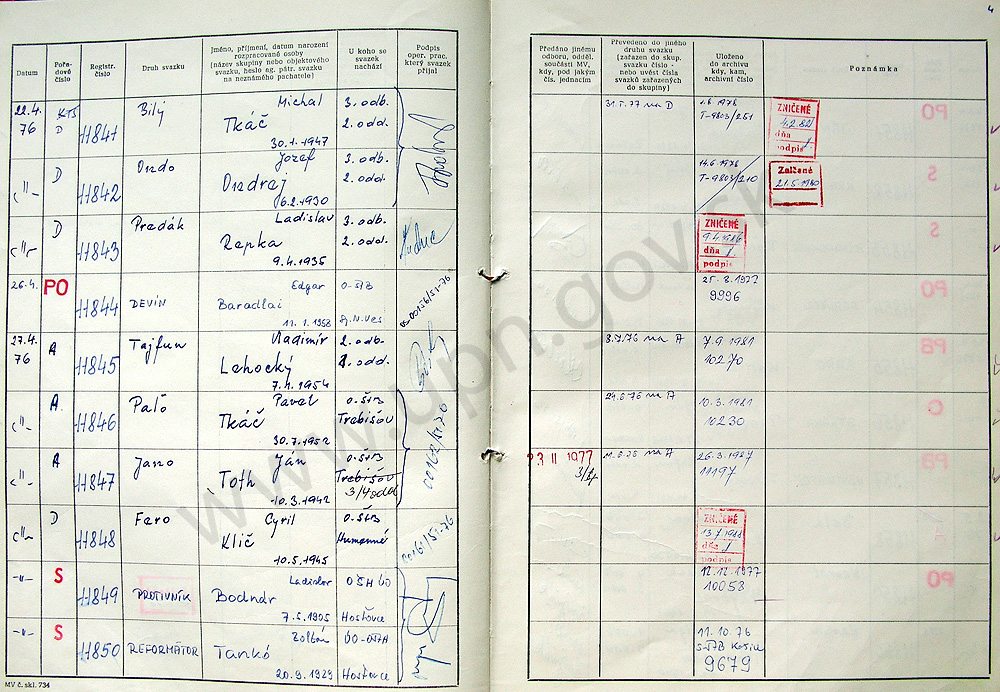 4
Datum
Pořa-
dové
číslo
Registr.
číslo
Druh svazku
Jméno, příjmení, datum narození
rozpracované osoby
(název skupiny nebo objektového
svazku, heslo ag. pátr. svazku
na neznámého pachatele)
U koho se
svazek
nachází
Podpis
oper. prac.
který svazek
přijal
Předáno jinému
odboru, odděl.
součásti MV,
kdy, pod jakým
čís. jednacím
Převedeno do jiného
druhu svazku
(zařazen do skup.
svazku číslo -
nebo uvést čísla
svazků zařazených
do skupiny)
Uloženo
do archivu
kdy, kam,
archivní číslo
Poznámka
22.4.
76
D
11841
Bílý
Michal
Tkáč
30.1.1947
3. odb.
2. odd.
31.5.77 na D
1.8.1978
T-9803/251
ZNIČENÉ
4.2.82
dňa
podpis
-"-
D
11842
Ondo
Jozef
Ondrej
6.2.1930
3. odb.
2. odd.
14.6.1978
T-9803/210
Zničené
21.5.1980
-"-
D
11843
Predák
Ladislav
Repka
9.4.1935
3. odb.
2. odd.
ZNIČENÉ
9.4.1986
dňa
podpis
26.4.
PO
11844
DEVÍN
Edgar
Baradlai
11.1.1958
O-ŠtB
Sp.N.Ves
05-00156/51-76
25.8.1977
9996
27.4.
76
A
11845
Tajfun
Vladimír
Lehocký
7.11.1954
2. odb.
1. odd.
8.7.76 na A
7.9.1981
10270
-"-
A
11846
Paľo
Pavel
Tkáč
30.7.1952
O.ŠtB
Trebišov
00162/51-76
24.6.76 na A
10.3.1981
10230
-"-
A
11847
Jano
Ján
Toth
10.3.1942
O.ŠtB
Trebišov
3/4 odd
23 II 1977
3/4
11.6.76 na A
26.3.1987
11197
-"-
D
11848
Fero
Cyril
Klič
10.5.1945
O.ŠtB
Humenné
00161/51-76
ZNIČENÉ
13.7.1988
dňa
podpis
-"-
S
11849
PROTIVNÍK
Ladislav
Bodnár
7.5.1905
OŠH ÚO
Hosťovce
12.12.1977
10053
-"-
S
11850
REFORMÁTOR
Zoltán
Tankó
20.9.1929
ÚO-OŠH
Hosťovce
11.10.76
S-ŠtB Košice
9679
MV č. skl. 734
www.upn.gov.sk